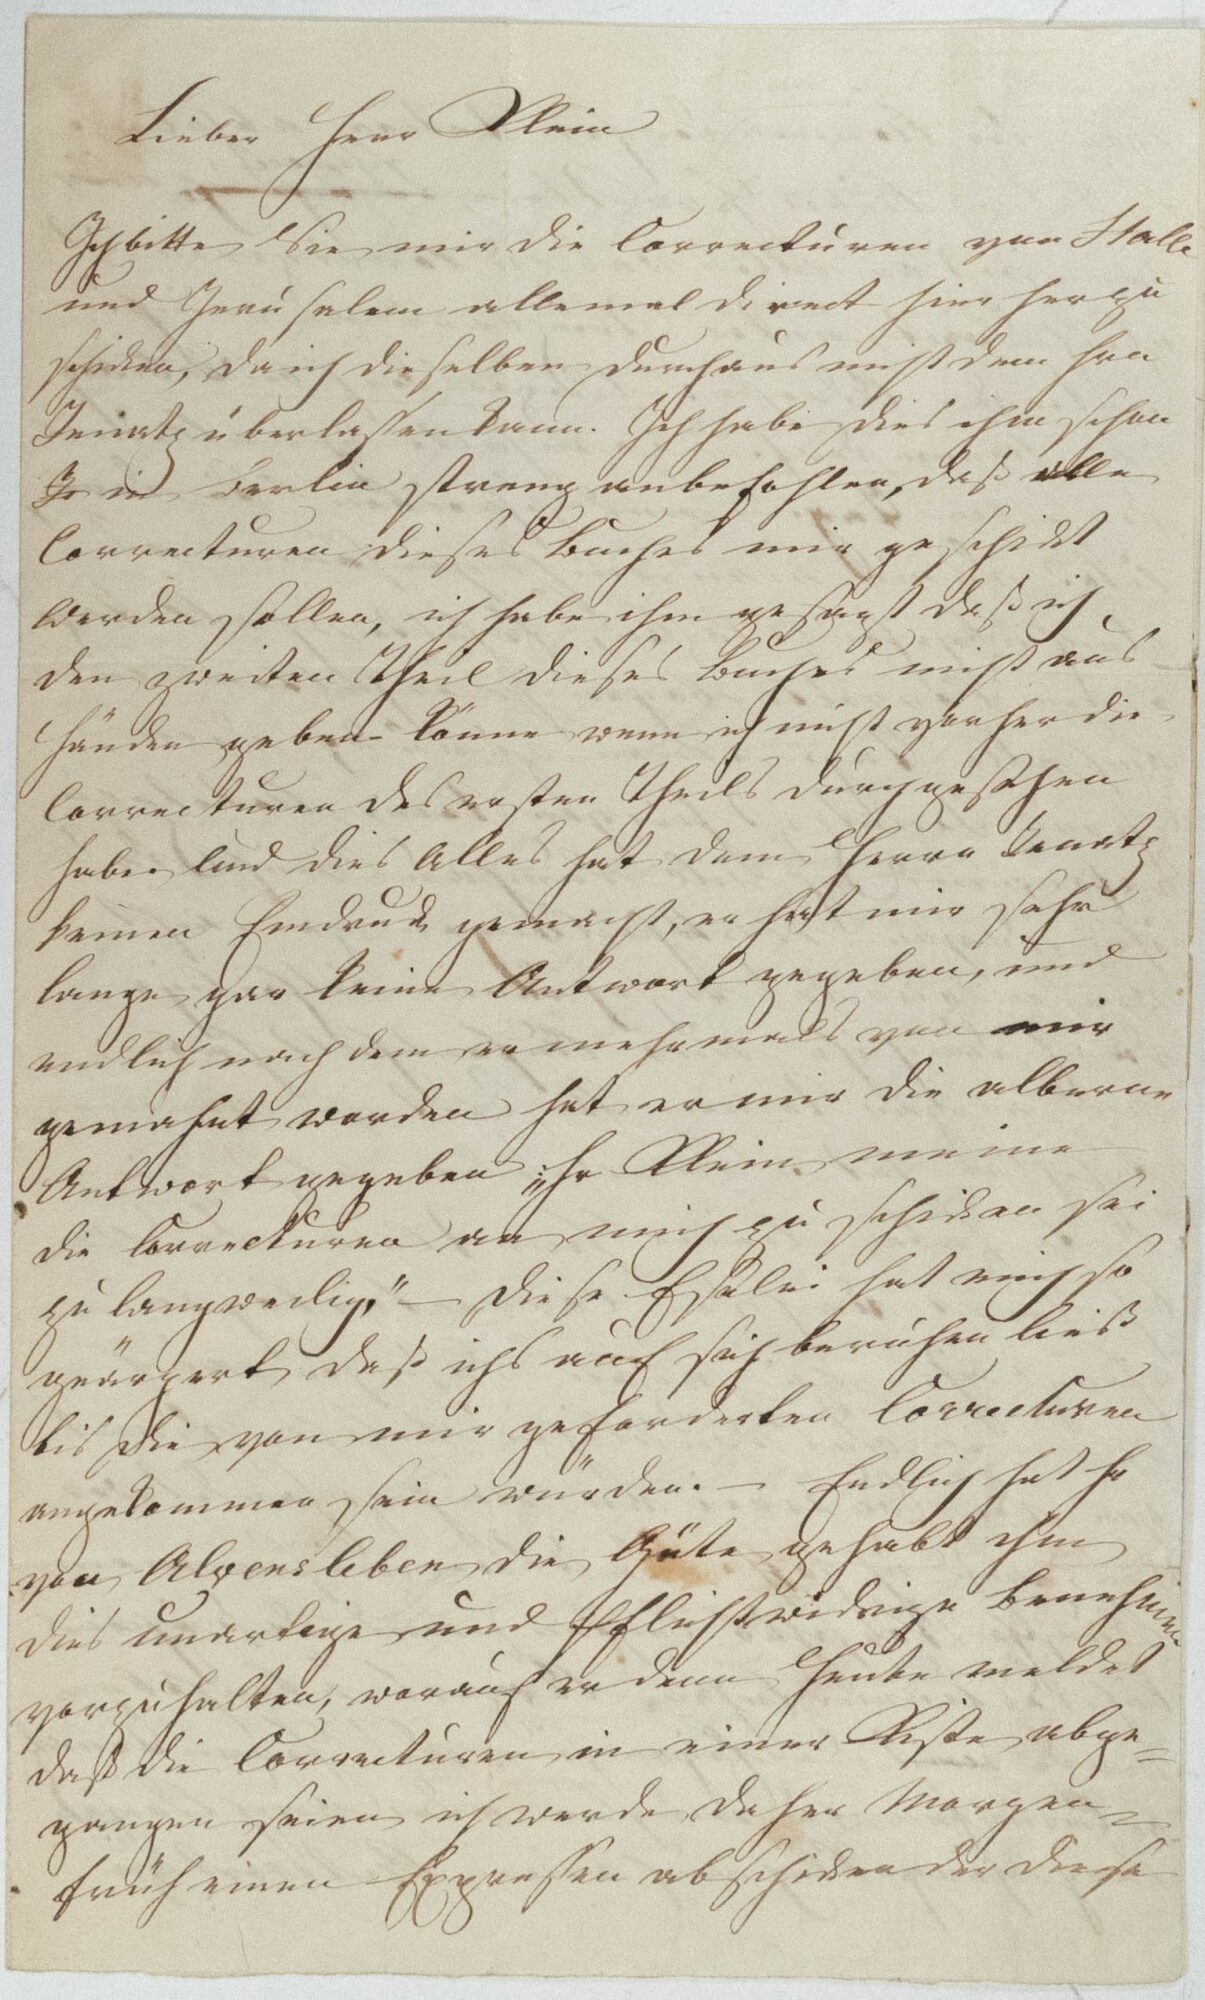 Lieber Herr Klein
Ich bitte Sie mir die Correcturen von Halle
und Jerusalem allemal direct hier her zu
schicken, da ich dieselben durchaus nicht dem Hrn
überlassen kann. Ich habe dies ihm schon
in Berlin streng anbefohlen, daß alle
Correcturen dieses Buches mir geschickt
werden sollen, ich habe ihm gesagt daß ich
den zweiten Theil dieses Buches nicht aus
Händen geben könne wenn ich nicht vorher die
Correcturen des ersten Theils durchgesehen
habe. Und dies Alles hat dem Herrn
keinen Eindruck gemacht, er hat mir sehr
lange gar keine Antwort gegeben, und
endlich nach dem er mehrmals von mir
gemahnt worden hat er mir die alberne
Antwort gegeben „Hr Klein meine
die Correcturen an mich zu schicken sei
zu langweilig." — Diese Eselei hat mich so
geärgert, daß ichs auf sich beruhen ließ
bis die von mir geforderten Correcturen
angekommen sein würden. — Endlich hat Hr
von Alvensleben die Güte gehabt ihm
dies unartige und pflichtwidrige Benehmen
vorzuhalten, worauf er denn heute meldet
daß die Correcturen in einer Kiste abge=
gangen seien ich werde daher Morgen
früh einen Expressen abschicken der diese